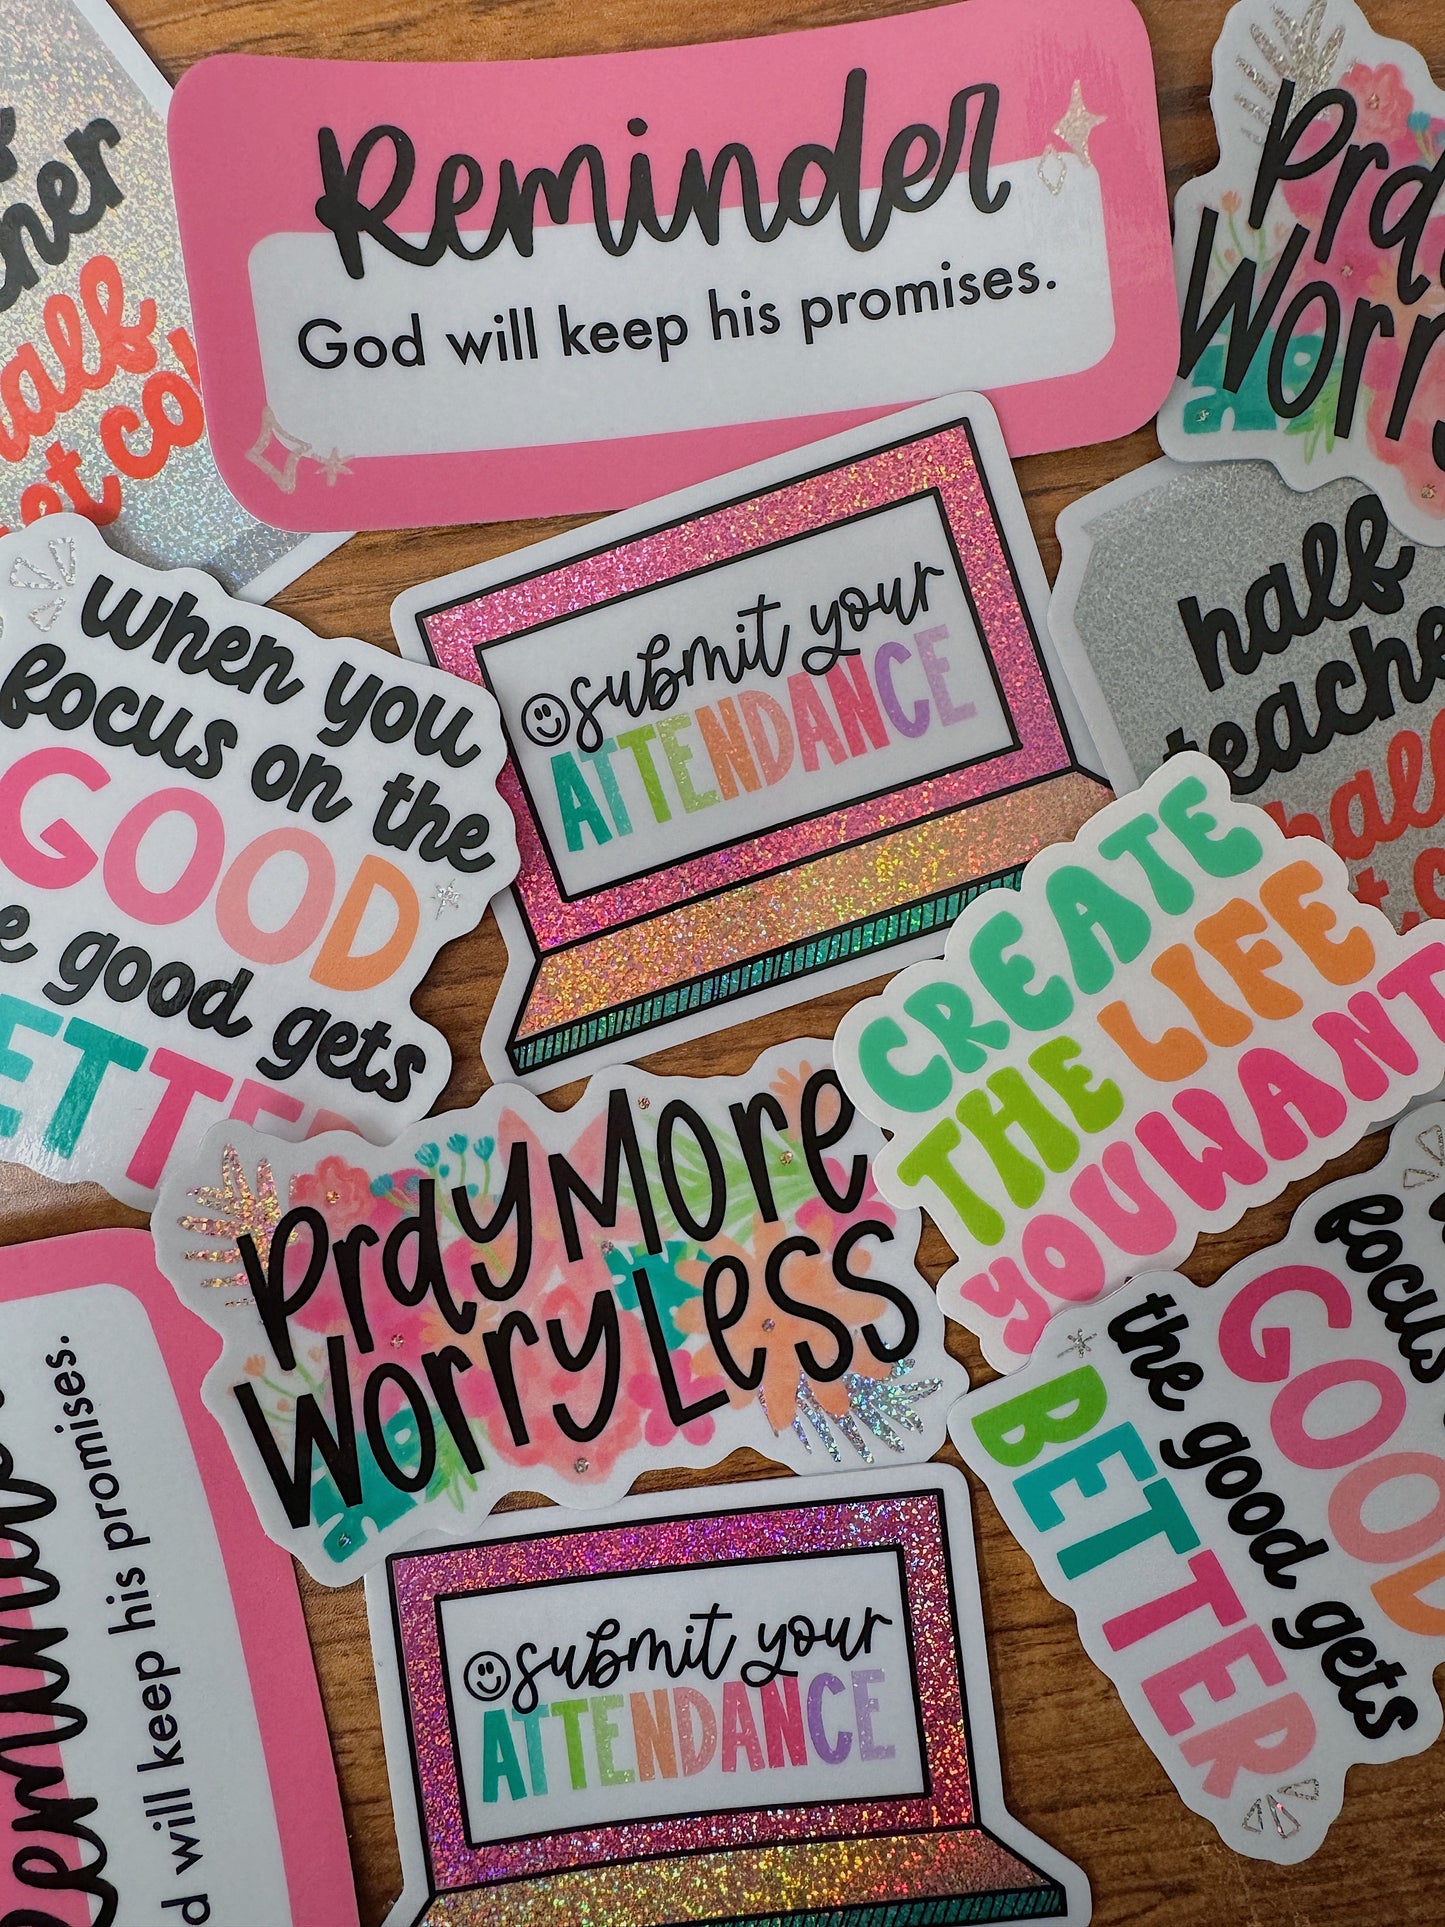 half
Reminder
God will keep his promises.
Pray
Worry
when you
focus on the
GOOD
good gets
submit your
ATTENDANCE
half
teacher
half
CREATE
THE LIFE
YOU WANT
Pray More
Worry Less
Reminder
will keep his promises.
submit your
ATTENDANCE
focus
GOOD
the good gets
BETTER